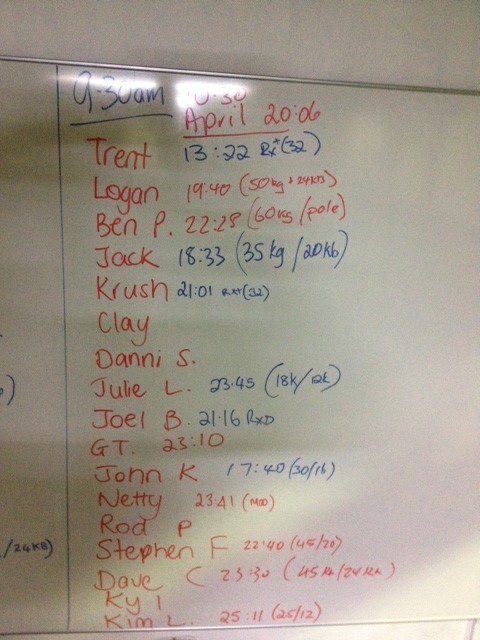 9:30am 10:30
April 20:06
Trent 13:22 Rx+(32)
Logan 19:40 (50kg + 24KB)
Ben P. 22:28 (60kg/pole)
Jack 18:33 (35kg/20Kb)
Krush 21:01 Rx+(32)
Clay
Danni S.
Julie L. 23:45 (18k/12k)
Joel B. 21:16 RXD
GT. 23:10
John K 17:40 (30/16)
Netty 23:41
Rod P
Stephen F 22:40 (45/20)
/24KB)
Dave C 23:30 (45
Ky I
Kim L. 25:11 (25/12)